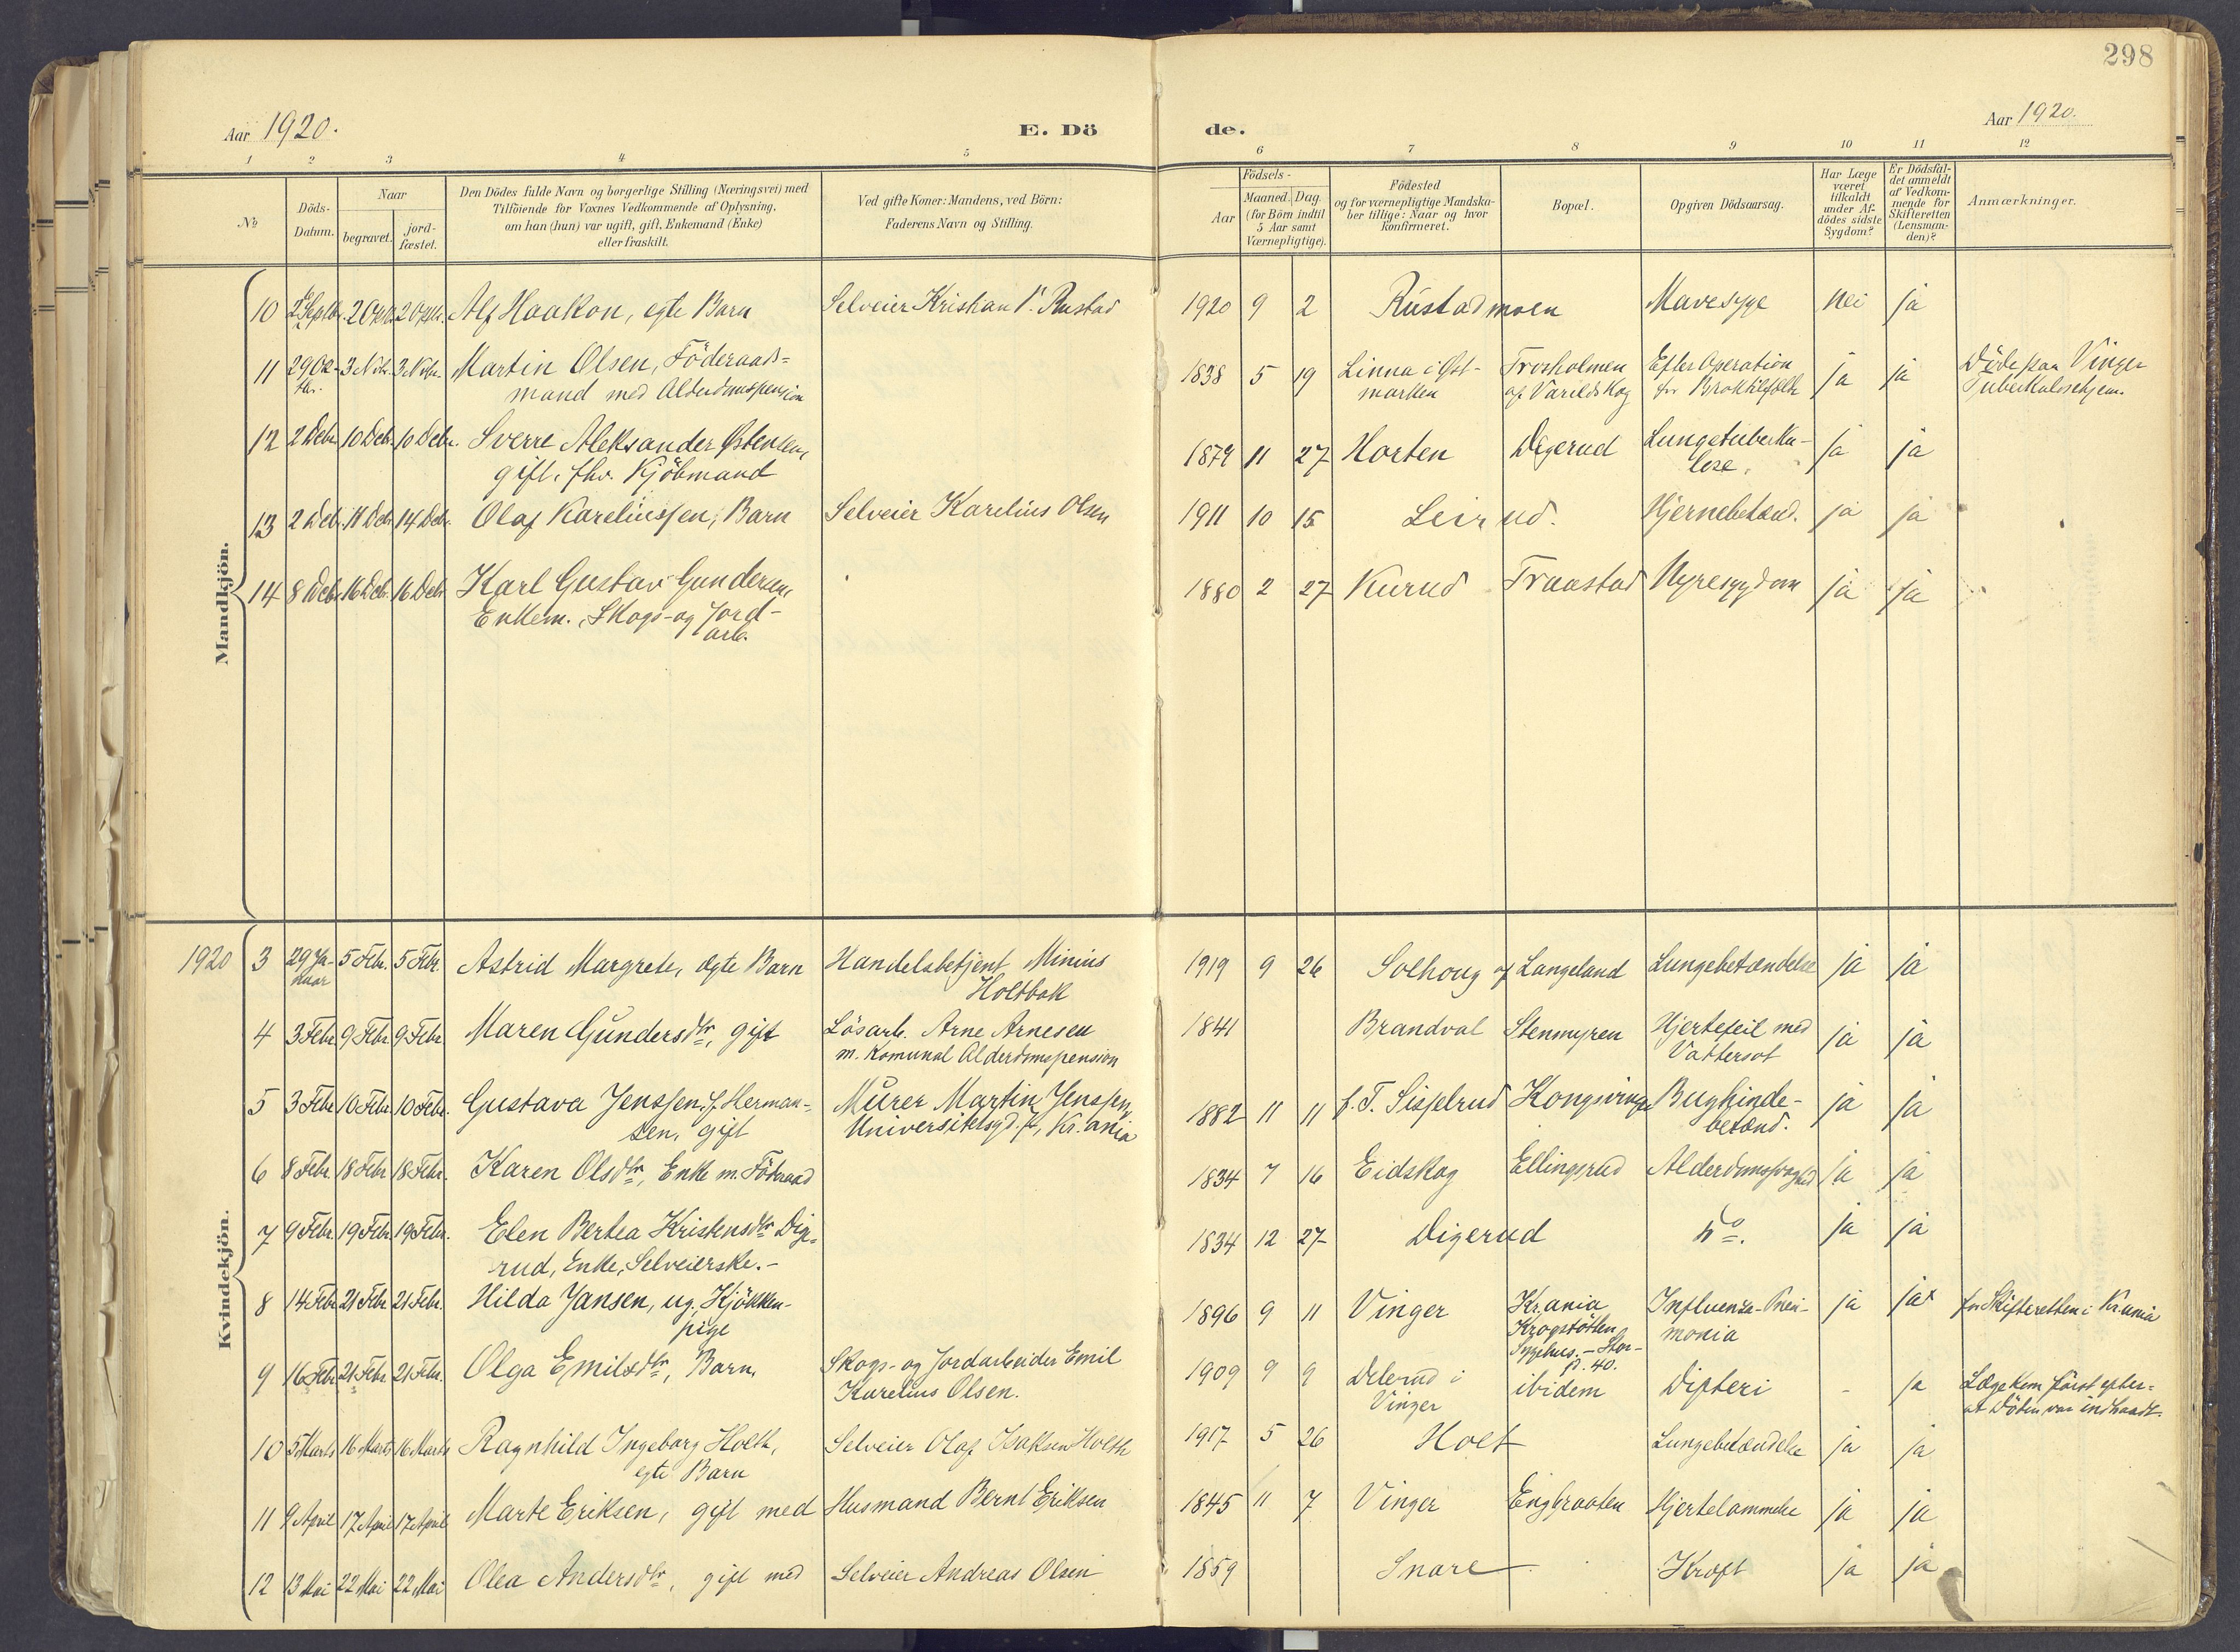 298
Aar 1920.
E. Dö de.
Aar 1920.
1 2 3 4 5 6 7 8 9 10 11 12
No
Döds-
Datum.
Naar
begravet.
jord-
fæstet.
Den Dödes fulde Navn og borgerlige Stilling (Næringsvei) med
Tilföiende for Voxnes Vedkommende af Oplysning,
om han (hun) var ugift, gift, Enkemand (Enke)
eller fraskilt.
Ved gifte Koner: Mandens, ved Börn:
Faderens Navn og Stilling.
Födsels-
Aar
Maaned. Dag.
(for Börn indtil
5 Aar samt
Værnepligtige).
Födested
og for værnepligtige Mandska-
ber tillige: Naar og hvor
konfirmeret.
Bopæl.
Opgiven Dödsaarsag.
Har Læge
været
tilkaldt
under Af-
dödes sidste
Sygdom?
Er Dödsfal-
det anmeldt
af Vedkom-
mende for
Skifteretten
(Lensman-
den)?
Anmærkninger.
Mandkjön.
10 Alf Haakon, egte Barn Selveier Kristian P. Rustad 1920 9 2 Rustadmoen Mavesyge nei ja
11 29 Ok- 3 Nvbr. 3 Nvbr. Martin Olsen, Föderaads- 1838 5 19 Linna i Øst- Efter Operation ja ja Döde paa Vinger
tbr. mand med Alderdomspension marken af Varildskog for Tuberkulosehjem.
12 2 Debr. 10 Debr. 10 Debr. Sverre Aleksander Østensen, 1879 11 27 Horten Digerud Lungetuberku- ja ja
gift, fhv. Kjöbmand lose.
13 2 Debr. 14 Debr. Olaf Kareliussen, Barn Selveier Karelius Olsen 1911 10 15 Leirud. Hjernebetænd. ja ja
14 8 Debr. 16 Debr. 16 Debr. Karl Gustav Gundersen, 1880 2 27 Kurud Traastad Nyresygdom ja ja
Enkem., Skogs- og Jord-
arb.
Kvindekjön.
1920 3 29 Ja- 5 Febr. 5 Febr. Astrid Margrete, ægte Barn Handelsbetjent Minius 1919 9 26 Solhoug af Langeland Lungebetændelse ja ja
nuar Holtbak
4 3 Febr. 9 Febr. 9 Febr. Maren Gundersdtr, gift Lösarb. Arne Arnesen 1841 Brandval Stenmyren Hjertefeil med ja ja
m. Komunal Alderdomspension Vattersot
5 3 Febr. 10 Febr. 10 Febr. Gustava Jenssen, f. Herman- Murer Martin Jenssen, 1882 11 11 f. T. Sisselrud Kongsvinger Bughinde- ja ja
sen, gift Kr.ania betænd.
6 8 Febr. 18 Febr. 18 Febr. Karen Olsdtr, Enke m. Föderaad 1834 7 16 Eidskog Ellingsrud Alderdomssvaghed ja ja
7 9 Febr. 19 Febr. 19 Febr. Elen Bertea Kristensdtr Dige- 1834 12 27 Digerud ja ja
rud, Enke, Selveierske.-
8 14 Febr. 21 Febr. 21 Febr. Hilda Jansen, ug., Kjökken- 1896 9 11 Vinger Kr.ania Influenza-Pneu- ja jax for Skifteretten i Kr.ania
pige Krogstötten monia
Sygehus.- Stor-
g. 40.
9 16 Febr. 21 Febr. 21 Febr. Olga Emilsdtr, Barn, Skogs- og Jordarbeider Emil 1909 9 9 Delerud i ibidem Difteri - ja Læge kom först efter-
Karelius Olsen. Vinger at Döden var indtraadt.
10 5 Marts 16 Marts 16 Marts Ragnhild Ingeborg Holth, Selveier Olaf Isaksen Holth 1917 5 26 Holt Lungebetændelse ja ja
egte Barn
11 9 April 17 April 17 April Marte Eriksen, gift med Husmand Bernt Eriksen 1845 11 7 Vinger Engbraaten Hjertelammelse ja ja
12 13 Mai 22 Mai 22 Mai Olea Andersdtr, gift med Selveier Andreas Olsen 1859 Snare Kræft ja ja